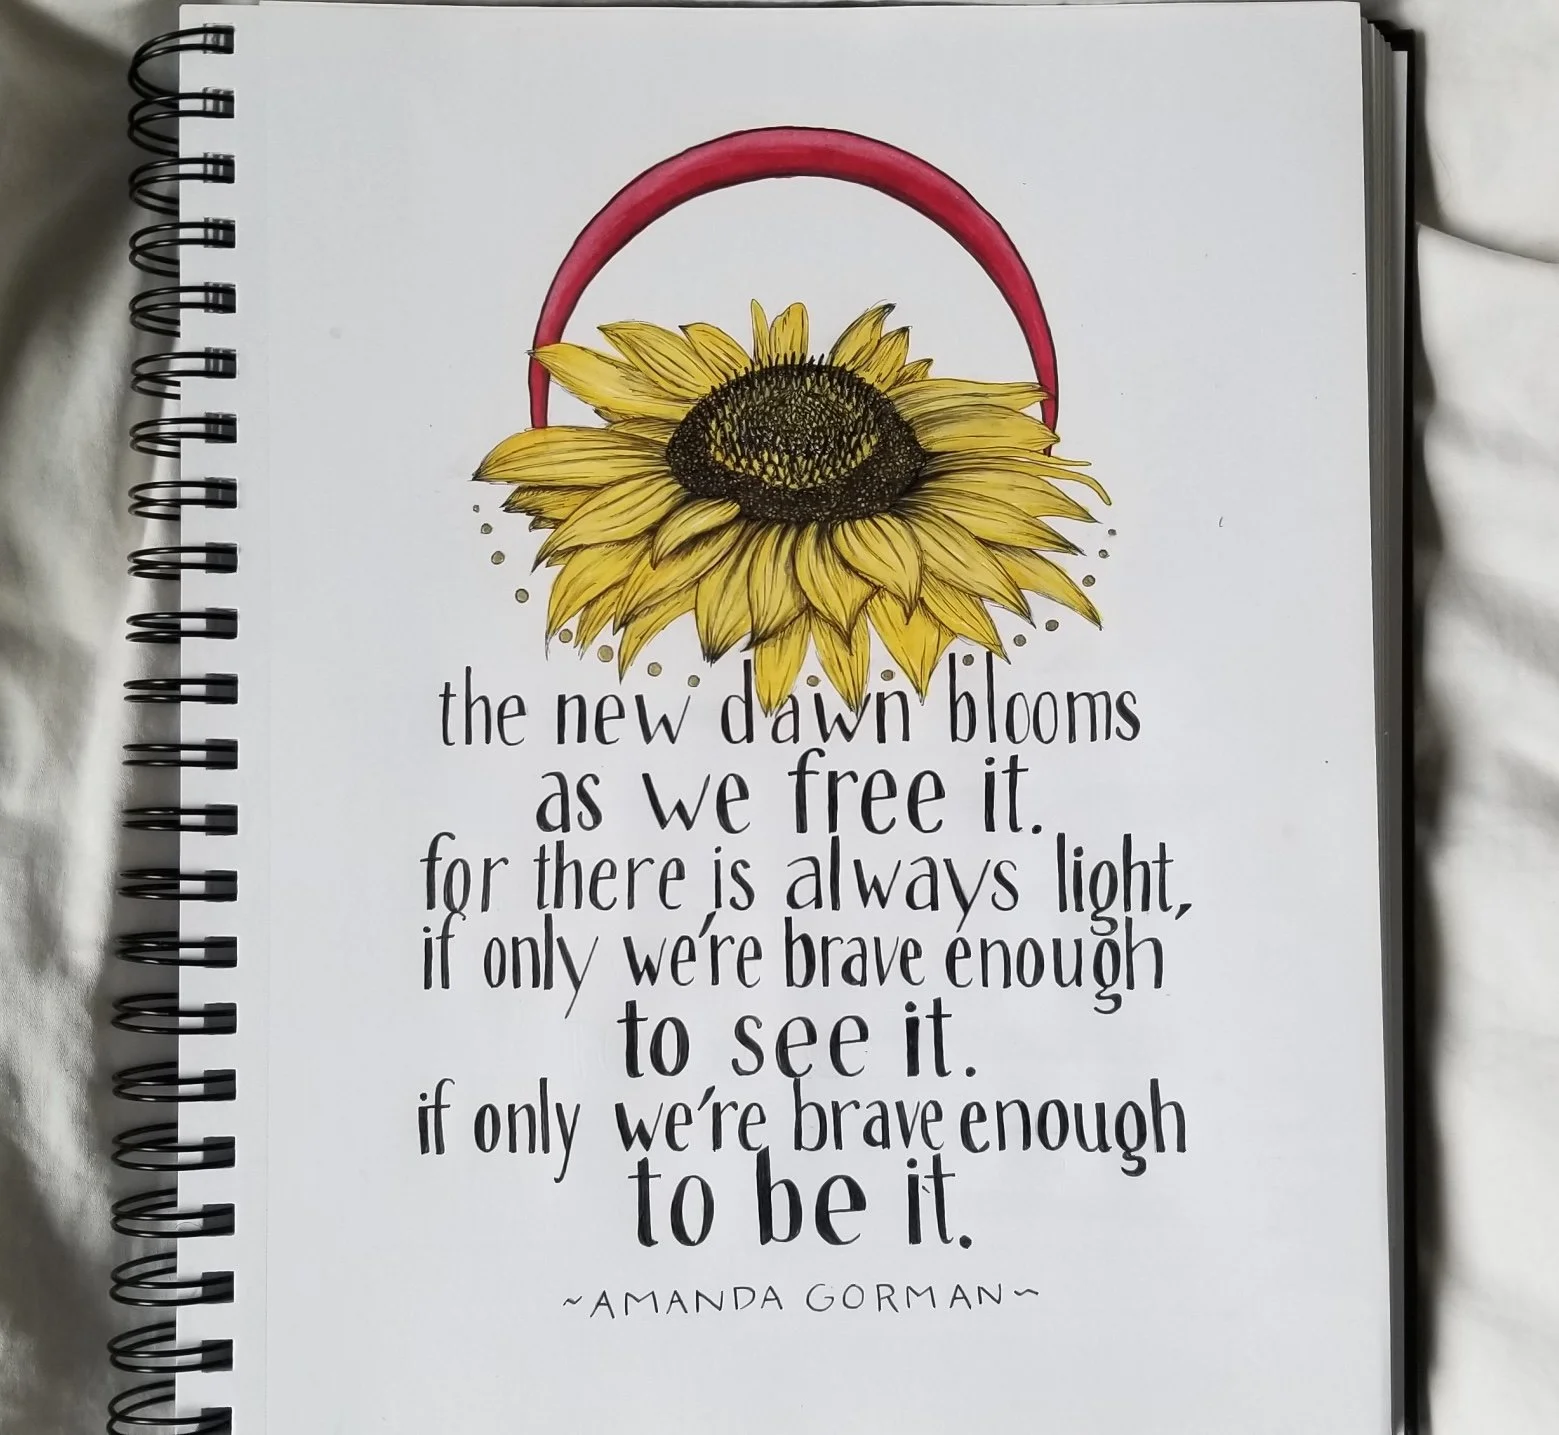 the new dawn blooms
as we free it.
for there is always light,
if only we're brave enough
to see it.
if only we're brave enough
to be it.
~AMANDA GORMAN~